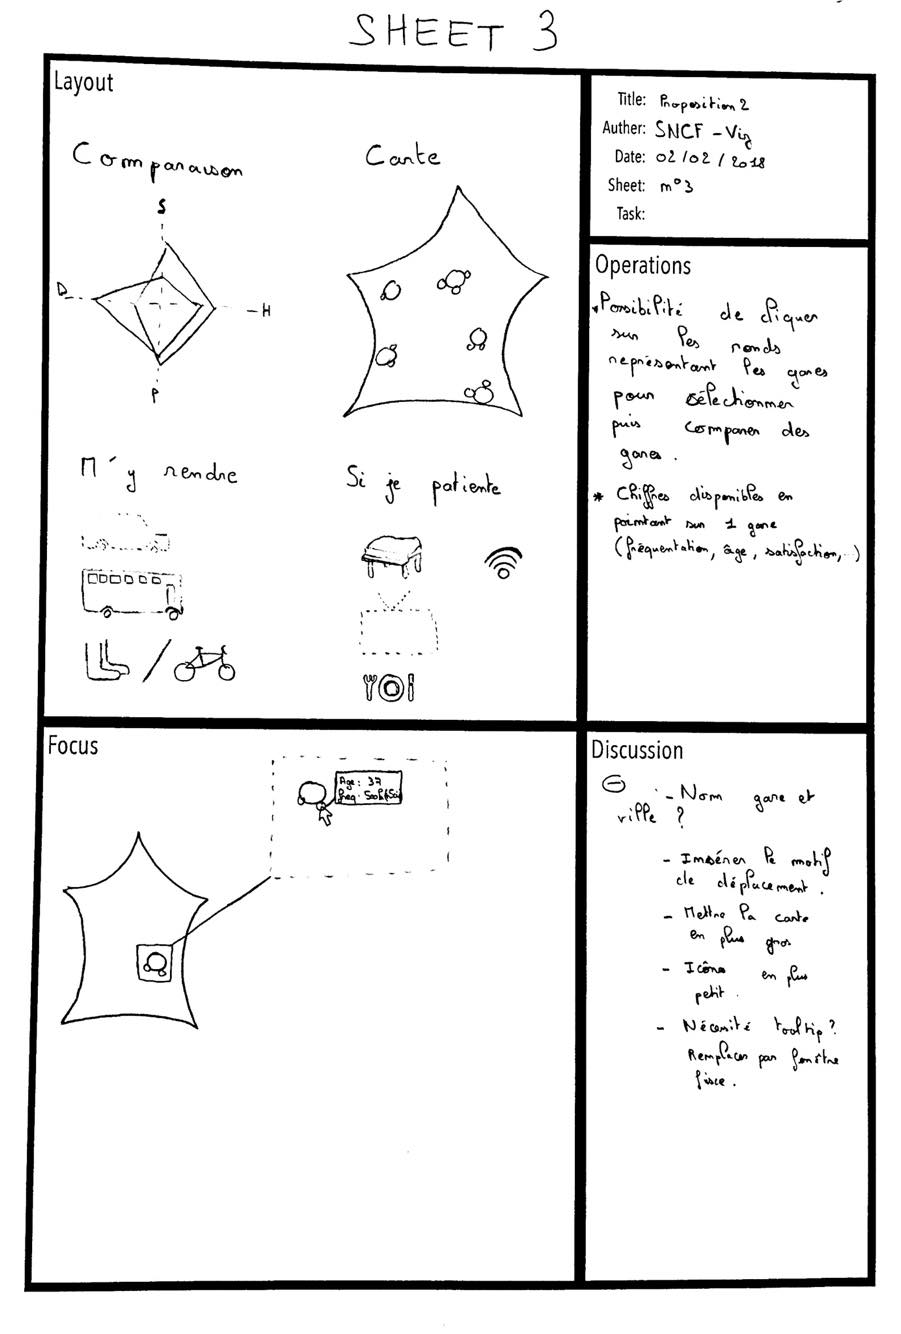 SHEET 3
Layout
Comparaison
Carte
S
D
H
P
M'y rendre
Si je patiente
Title: Proposition 2
Auther: SNCF - Viz
Date: 02/02/2018
Sheet: n°3
Task:
Operations
* Possibilité de cliquer
sur les ronds
représentant les gares
pour sélectionner
puis comparer des
gares.
* Chiffres disponibles en
pointant sur 1 gare
(fréquentation, âge, satisfaction,..)
Focus
Age : 37
Discussion
- Nom gare et
ville ?
- Insérer le motif
de déplacement.
- Mettre la carte
en plus gros
- Icône en plus
petit.
- Nécessité tooltip ?
Remplacer par fenêtre
fixe.